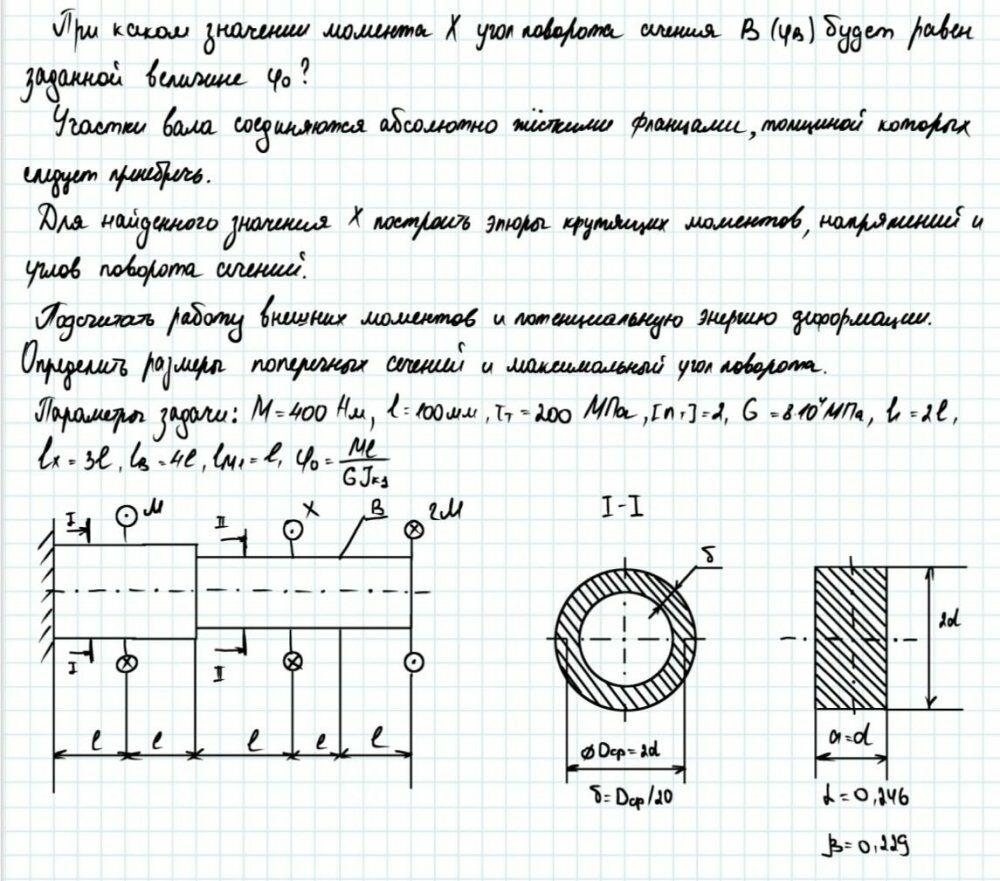 При каком значении момента X угол поворота сечения B (φB) будет равен
заданной величине φ₀?
Участки вала соединяются абсолютно жёсткими фланцами, толщиной которых
следует принебречь.
Для найденного значения X построить эпюры крутящих моментов, напряжений и
углов поворота сечений.
Подсчитать работу внешних моментов и потенциальную энергию деформации.
Определить размеры поперечных сечений и максимальный угол поворота.
Параметры задачи: M = 400 Нм, l = 100 мм, τт = 200 МПа, [nт] = 2, G = 8·10⁴ МПа, l₁ = 2l,
lx = 3l, lB = 4l, lM₁ = l, φ₀ = Ml/GJк₂
I M II X B 2M I-I
δ
2d
I II
l l l l l
⌀ Dср = 2d a = d
δ = Dср/20 α = 0,246
β = 0,229